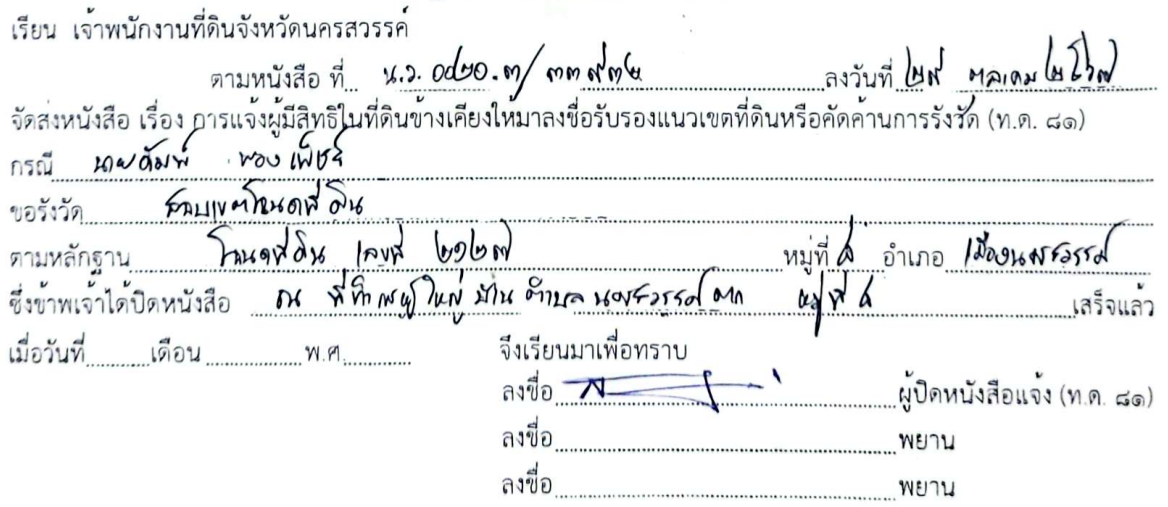 เรียน เจ้าพนักงานที่ดินจังหวัดนครสวรรค์
ตามหนังสือ ที่ น.ว. ๐๐๒๐.๓/ ลงวันที่ ๒๙ ตุลาคม ๒๕๖๗
จัดส่งหนังสือ เรื่อง การแจ้งผู้มีสิทธิในที่ดินข้างเคียงให้มาลงชื่อรับรองแนวเขตที่ดินหรือคัดค้านการรังวัด (ท.ด. ๘๑)
กรณี นาย
ขอรังวัด สอบเขตโฉนดที่ดิน
ตามหลักฐาน โฉนดที่ดิน เลขที่ ๒๑๒๗ หมู่ที่ อำเภอ เมืองนครสวรรค์
ซึ่งข้าพเจ้าได้ปิดหนังสือ ณ ที่ทำการผู้ใหญ่บ้าน ตำบล นครสวรรค์ตก หมู่ที่ เสร็จแล้ว
เมื่อวันที่ เดือน พ.ศ. จึงเรียนมาเพื่อทราบ
ลงชื่อ ผู้ปิดหนังสือแจ้ง (ท.ด. ๘๑)
ลงชื่อ พยาน
ลงชื่อ พยาน